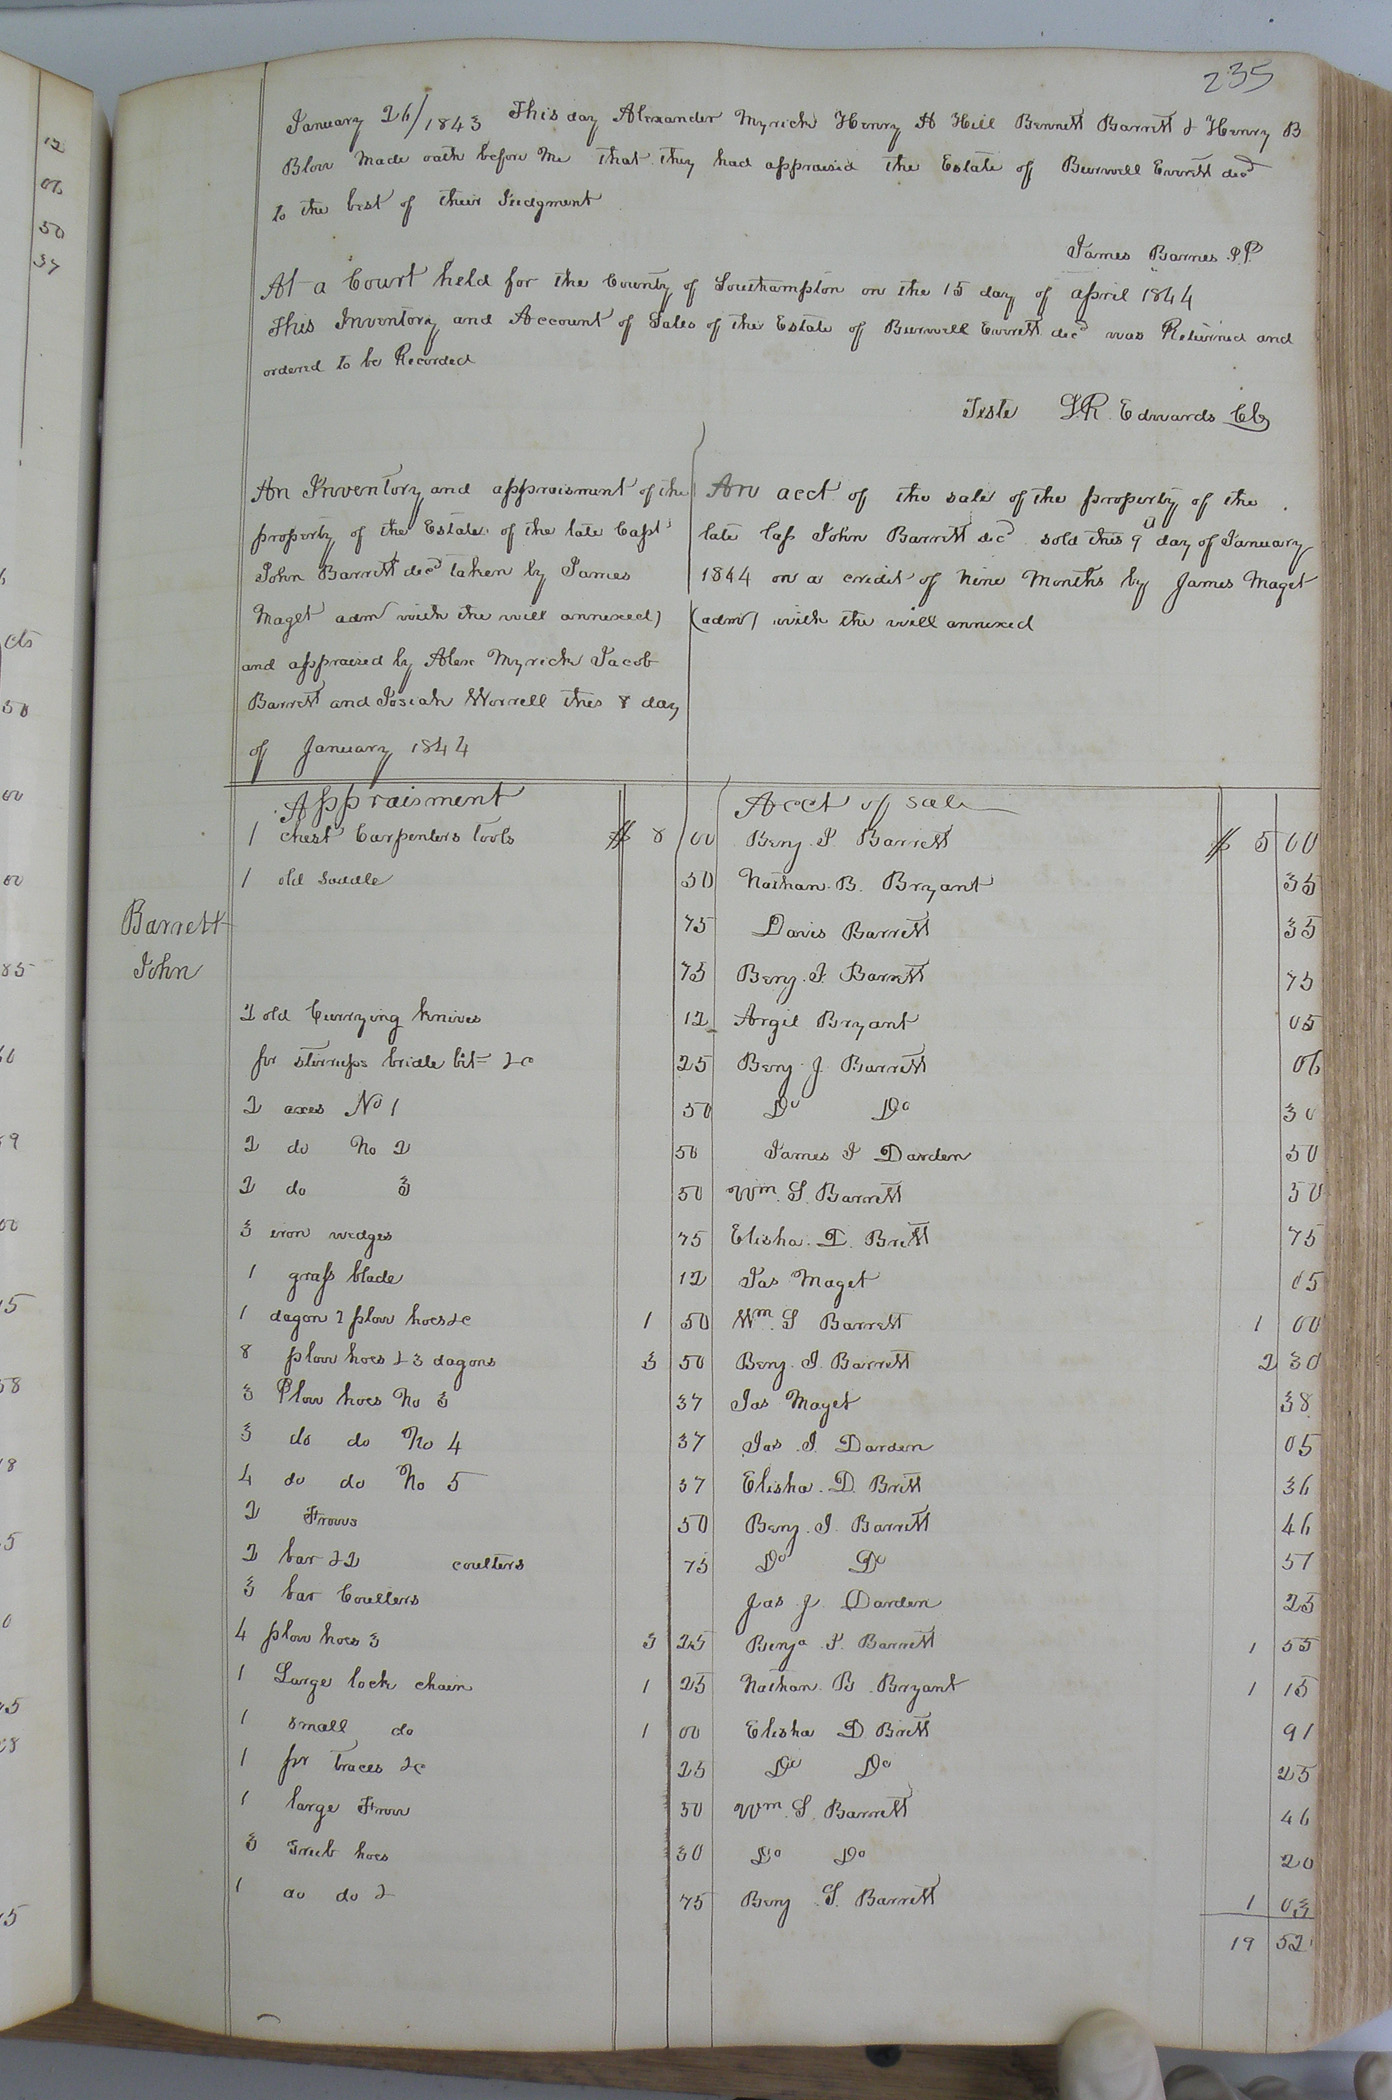 235
January 26/1843 This day Alexander Myrick Henry A Hill Bennett Barrett & Henry B
Blow Made oath before Me that they had appraised the Estate of Burwell Everett decd
to the best of their Judgment
James Barnes J.P.
At a Court held for the County of Southampton on the 15 day of april 1844
This Inventory and Account of Sales of the Estate of Burwell Everett decd was Returned and
orderd to be Recorded
Teste L.R. Edwards Clk
An Inventory and appraisment of the
property of the Estate of the late Capt
John Barrett decd taken by James
Maget adm with the will annexed)
and appraised by Alex Myrick Jacob
Barrett and Josiah Worrell this 8 day
of January 1844
An acct of the sale of the property of the
late Cap John Barrett decd sold this 9th day of January
1844 on a credit of Nine Months by James Maget
(admr) with the will annexed
Barrett
John
Appraisment Acct of sale
1 chest Carpenters tools $ 8 00 Benj. J. Barrett $ 5 00
1 old saddle 50 Nathan. B. Bryant 35
75 Davis Barrett 35
75 Benj. J. Barrett 75
2 old Currying knives 12 Argil Bryant 05
pr sterrups bridle bit &c 25 Benj J Barrett 06
2 axes No 1 50 Do Do 30
2 do No 2 50 James J Darden 50
2 do 3 50 Wm. S. Barrett 50
3 iron wedges 75 Elisha. D. Britt 75
1 grass blade 12 Jas Maget 05
1 dagon 2 plow hoes &c 1 50 Wm. S Barrett 1 00
8 plow hoes & 3 dagons 3 50 Benj. J. Barrett 2 30
3 Plow hoes No 3 37 Jas Maget 38
3 do do No 4 37 Jas. J. Darden 05
4 do do No 5 37 Elisha. D. Britt 36
2 Frows 50 Benj. J. Barrett 46
2 bar & 2 coulters 75 Do Do 57
3 bar Coulters Jas J. Darden 25
4 plow hoes 3 3 25 Benja J. Barrett 1 55
1 Large lock chain 1 25 Nathan B. Bryant 1 15
1 small do 1 00 Elisha D Britt 91
1 pr traces &c 25 Do Do 25
1 large Frow 50 Wm. S. Barrett 46
3 Grub hoes 30 Do Do 20
1 do do 2 75 Benj J. Barrett 1 03
19 52